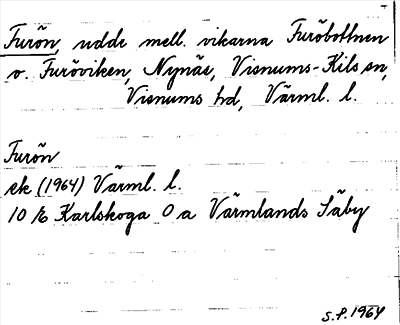 Furön, udde mell. vikarna Furöbottnen
o. Furöviken, Nynäs, Visnums-Kils sn,
Visnums hd, Värml. l.
Furön
ek (1964) Värml. l.
10 E Karlskoga O a Värmlands Säby
S.P. 1964